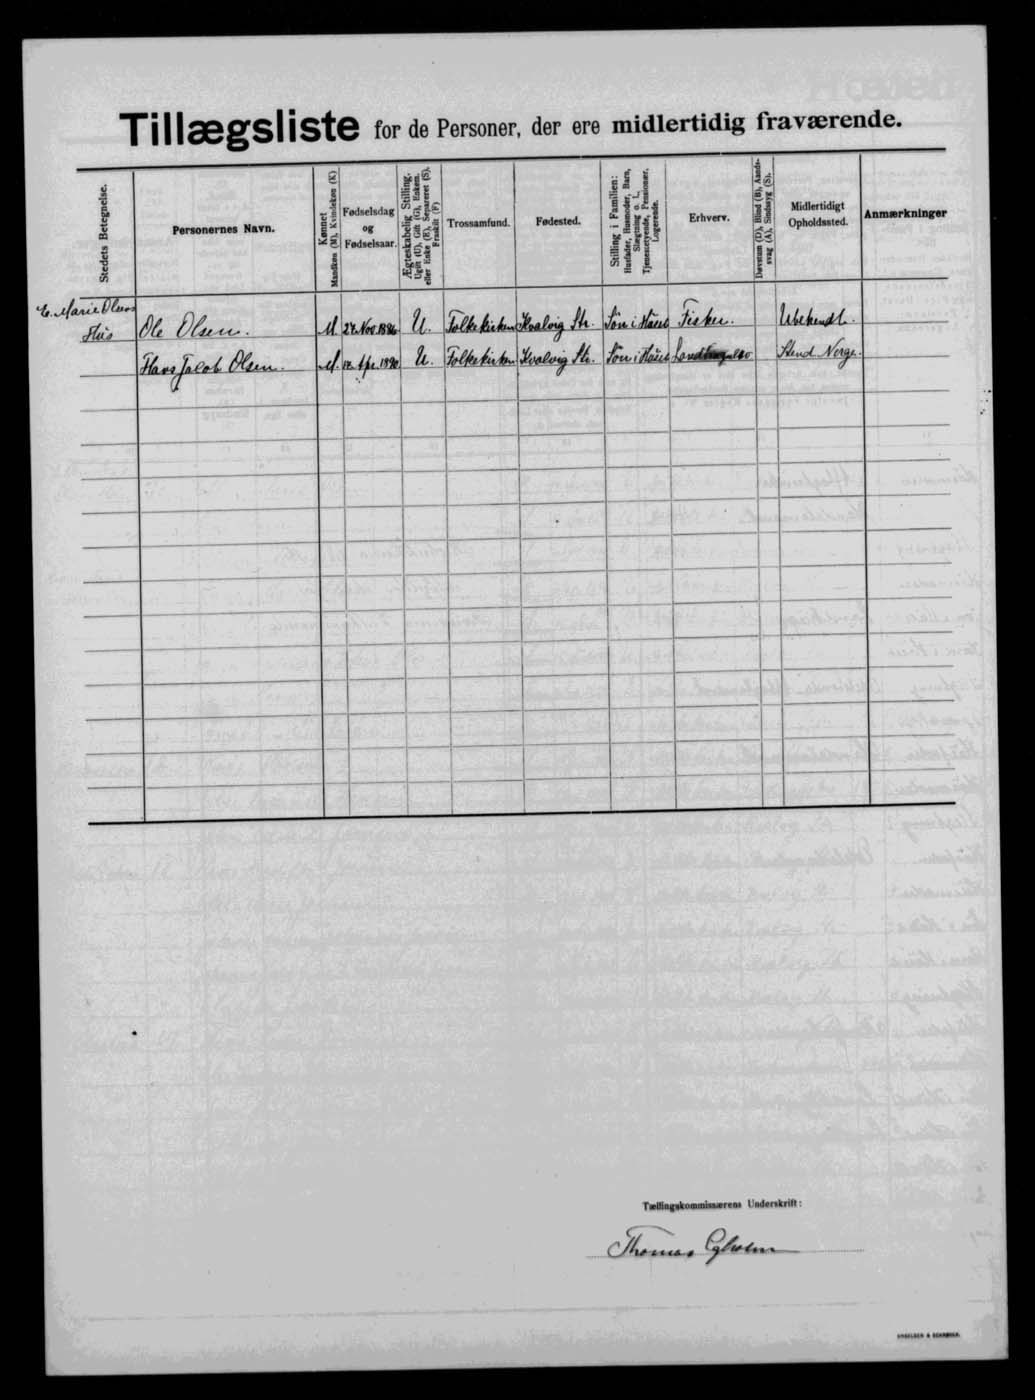 Tillægsliste for de Personer, der ere midlertidig fraværende.
Stedets Betegnelse.
Personernes Navn.
Kønnet
Mandkøn (M), Kvindekøn (K)
Fødselsdag
og
Fødselsaar.
Ægteskabelig Stilling.
Ugift (U), Gift (G), Enkem.
eller Enke (E), Separeret (S),
Fraskilt (F)
Trossamfund.
Fødested.
Stilling i Familien:
Husfader, Husmoder, Barn,
Slægtning o. l.,
Tjenestetyende, Pensionær,
Logerende.
Erhverv.
Døvstum (D), Blind (B), Aands-
svag (A), Sindssyg (S).
Midlertidigt
Opholdssted.
Anmærkninger
E. Marie Olsens
Hus
Ole Olsen. M. 24. Nov. 1886 U. Folkekirken Kvalvig Str. Søn i Huset Fisker. Ubekendt.
Hans Jacob Olsen. M. Apr. 1890 U. Folkekirken Kvalvig Str. Søn i Huset Norge.
Tællingskommissærens Underskrift:
Thomas